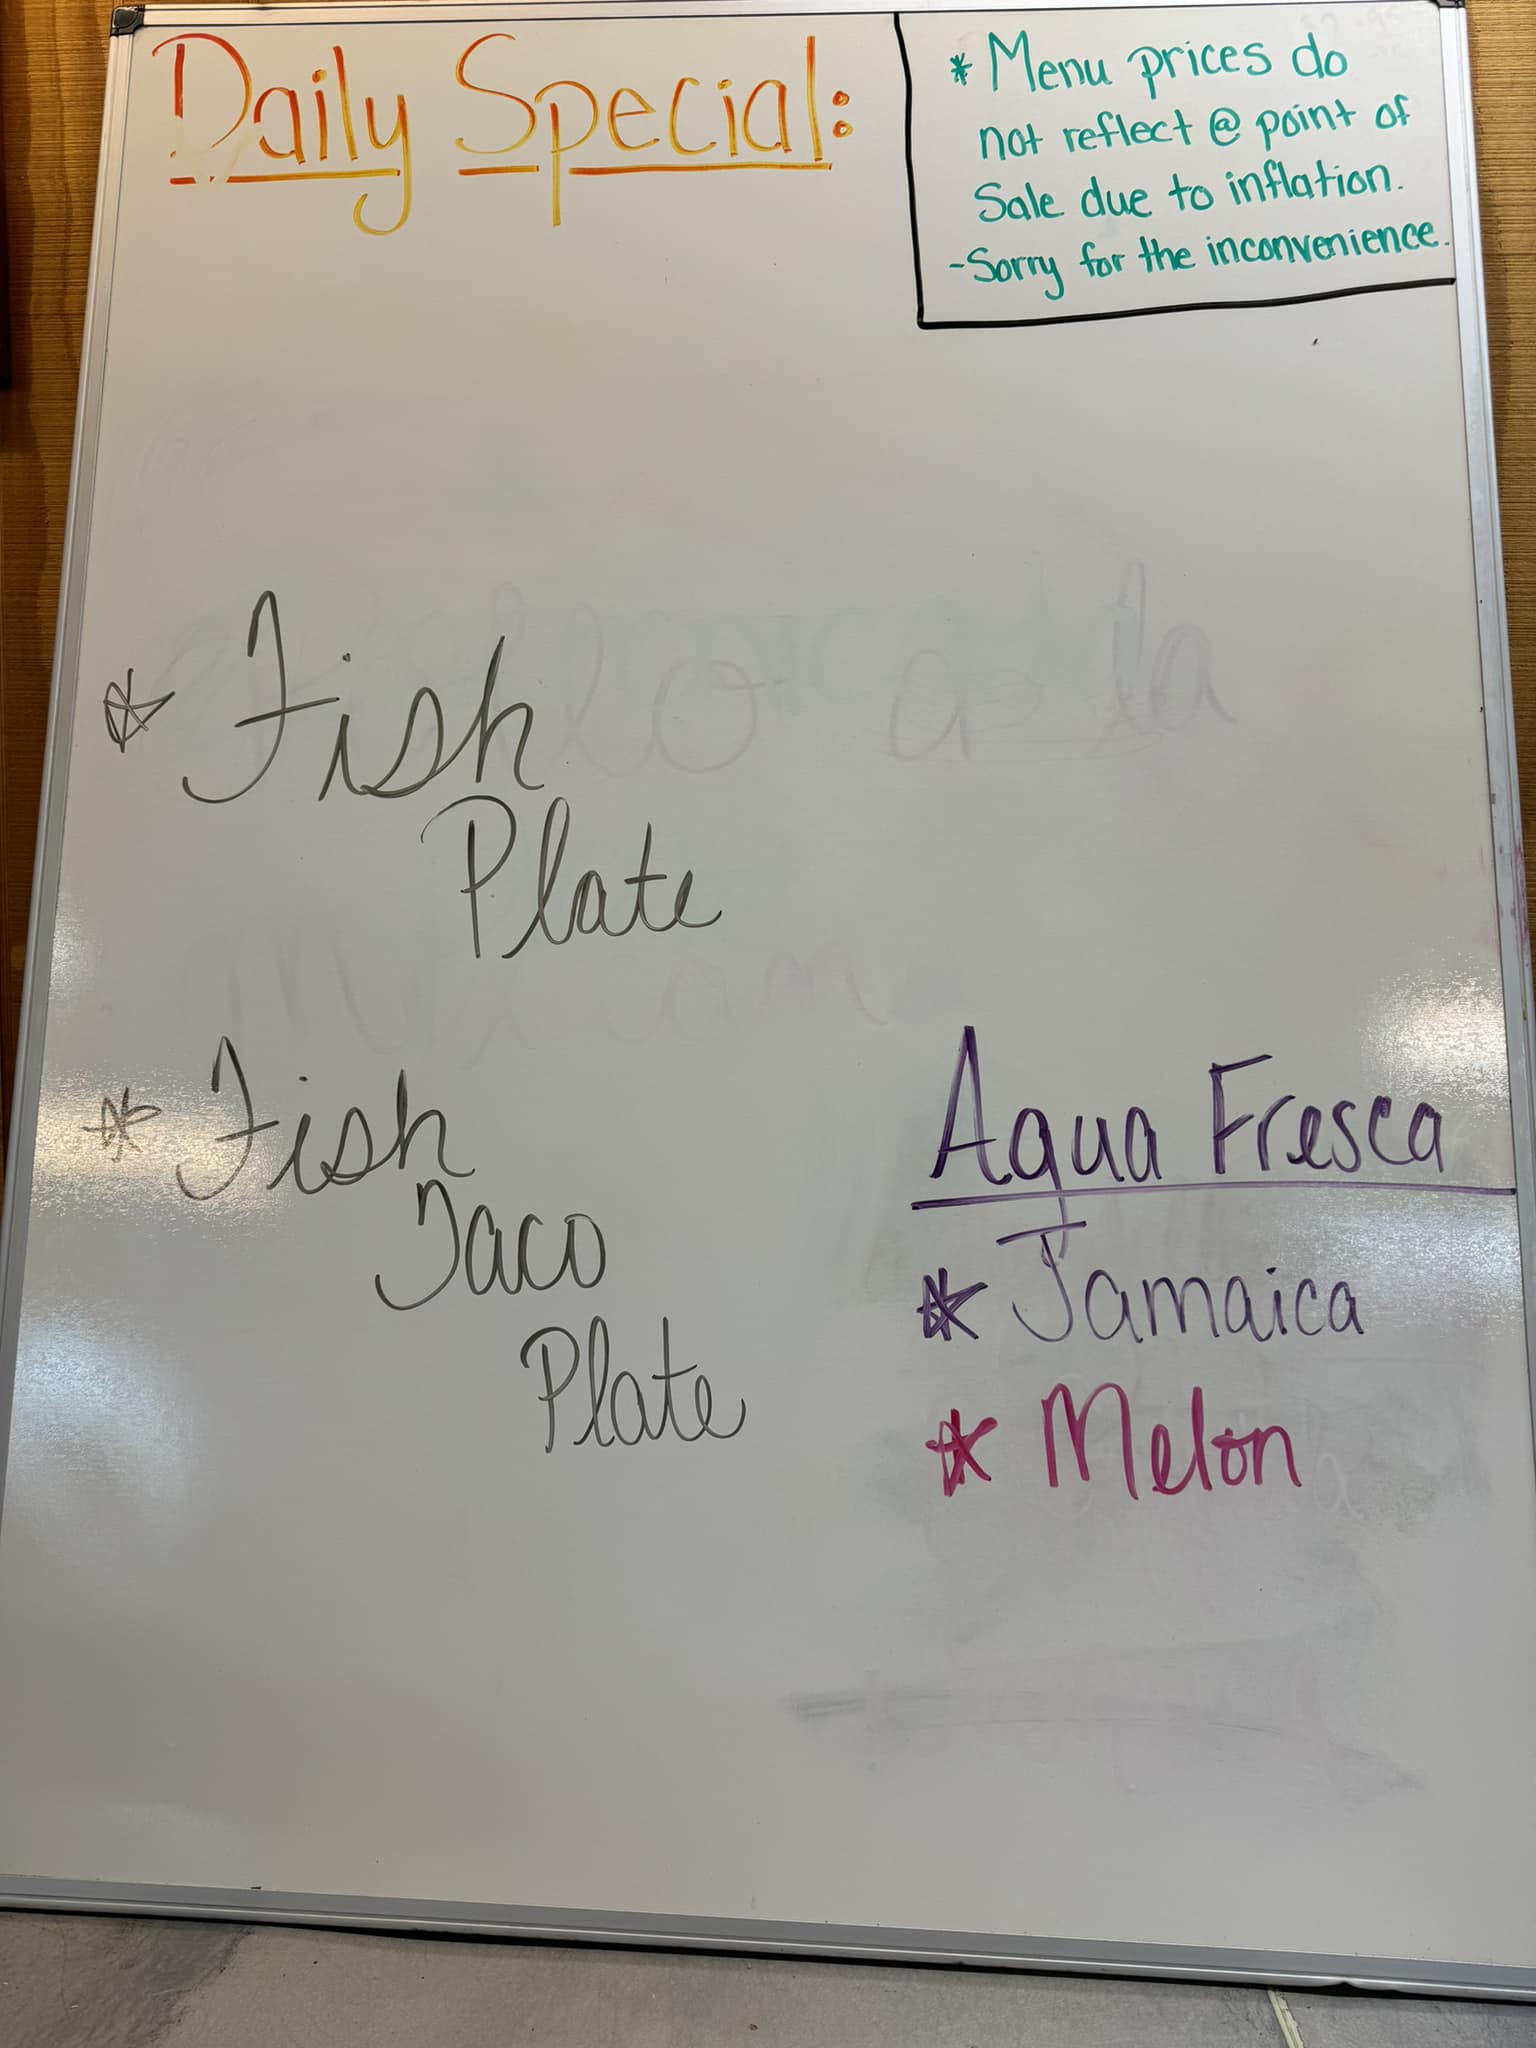 Daily Special:
* Menu prices do
not reflect @ point of
Sale due to inflation.
-Sorry for the inconvenience.
* Fish
Plate
* Fish
Taco
Plate
Aqua Fresca
* Jamaica
* Melon